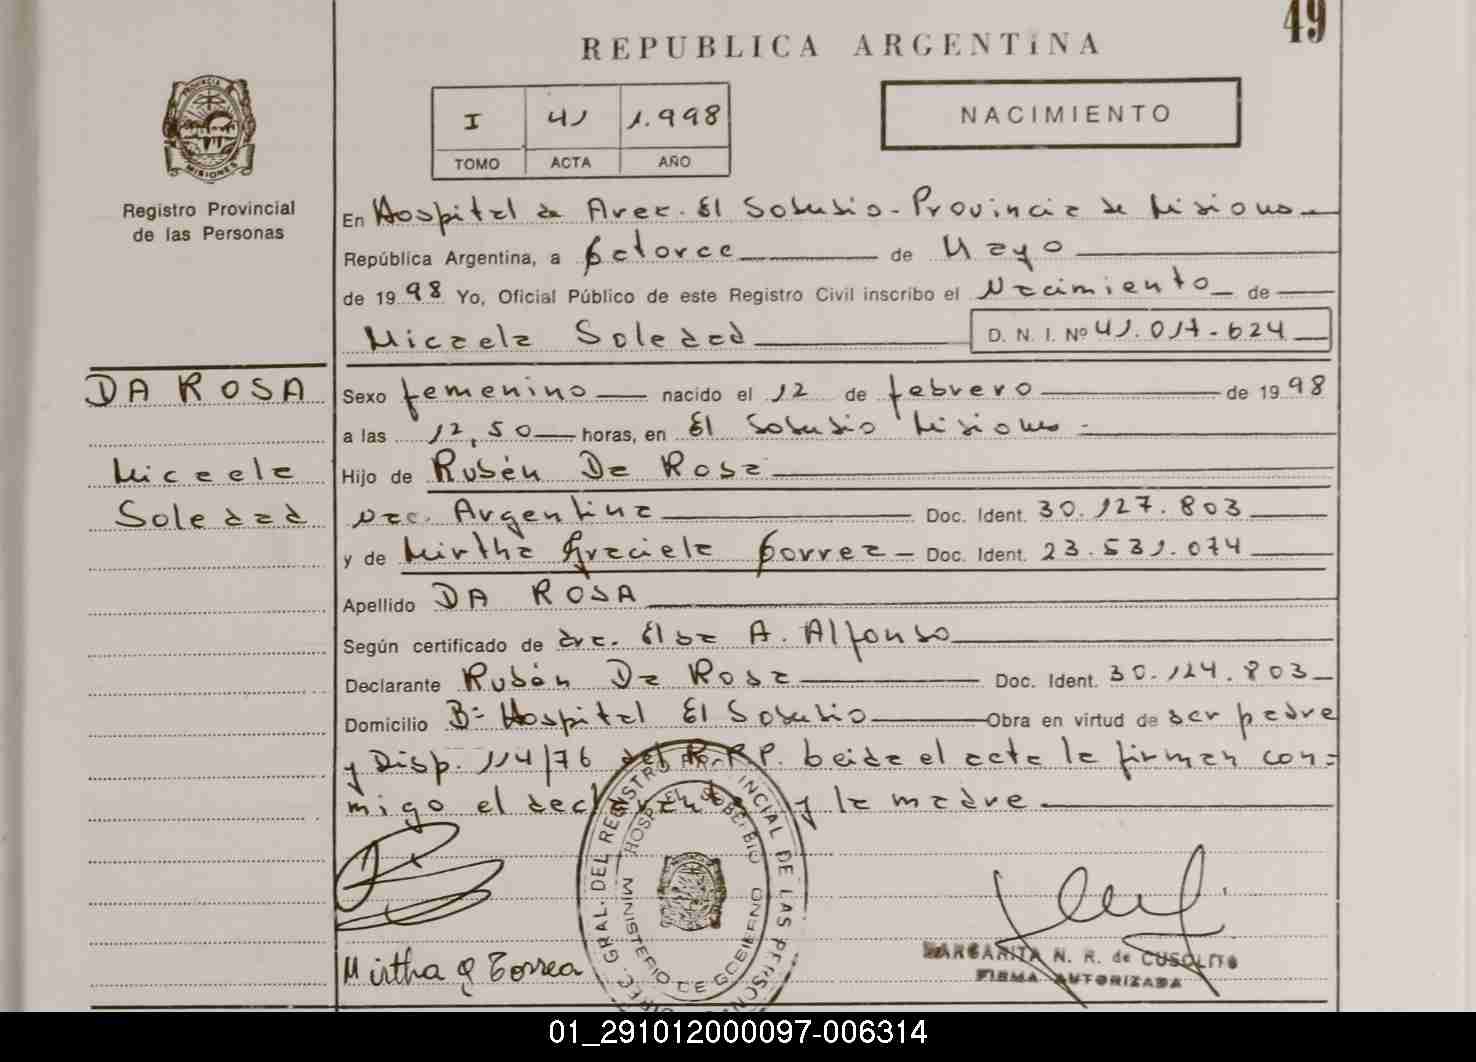 49
REPUBLICA ARGENTINA
I 41 1.998
TOMO ACTA AÑO
NACIMIENTO
PROVINCIA DE MISIONES
Registro Provincial
de las Personas
En Hospital de Area. El Soberbio - Provincia de Misiones
República Argentina, a Catorce de Mayo
de 1998 Yo, Oficial Público de este Registro Civil inscribo el Nacimiento de
Micaela Soledad D. N. I. Nº 41.017-624
DA ROSA
Micaela
Soledad
Sexo femenino nacido el 12 de febrero de 1998
a las 12,50 horas, en El Soberbio Misiones -
Hijo de Rubén Da Rosa
Nac. Argentina Doc. Ident. 30.127.803
y de Mirtha Graciela Correa - Doc. Ident. 23.531.074
Apellido DA ROSA
Según certificado de dra. Elsa A. Alfonso
Declarante Rubén Da Rosa Doc. Ident. 30.127.803
Domicilio Bº Hospital El Soberbio Obra en virtud de ser padre
y Disp. 114/76 del R.P.P. leida el acta la firman con=
migo el declarante y la madre
DIREC. GRAL. DEL REGISTRO PROVINCIAL DE LAS PERSONAS
HOSP. EL SOBERBIO
MINISTERIO DE GOBIERNO
Mirtha G Correa
MARGARITA N. R. de CUSOLITO
FIRMA AUTORIZADA
01_291012000097-006314